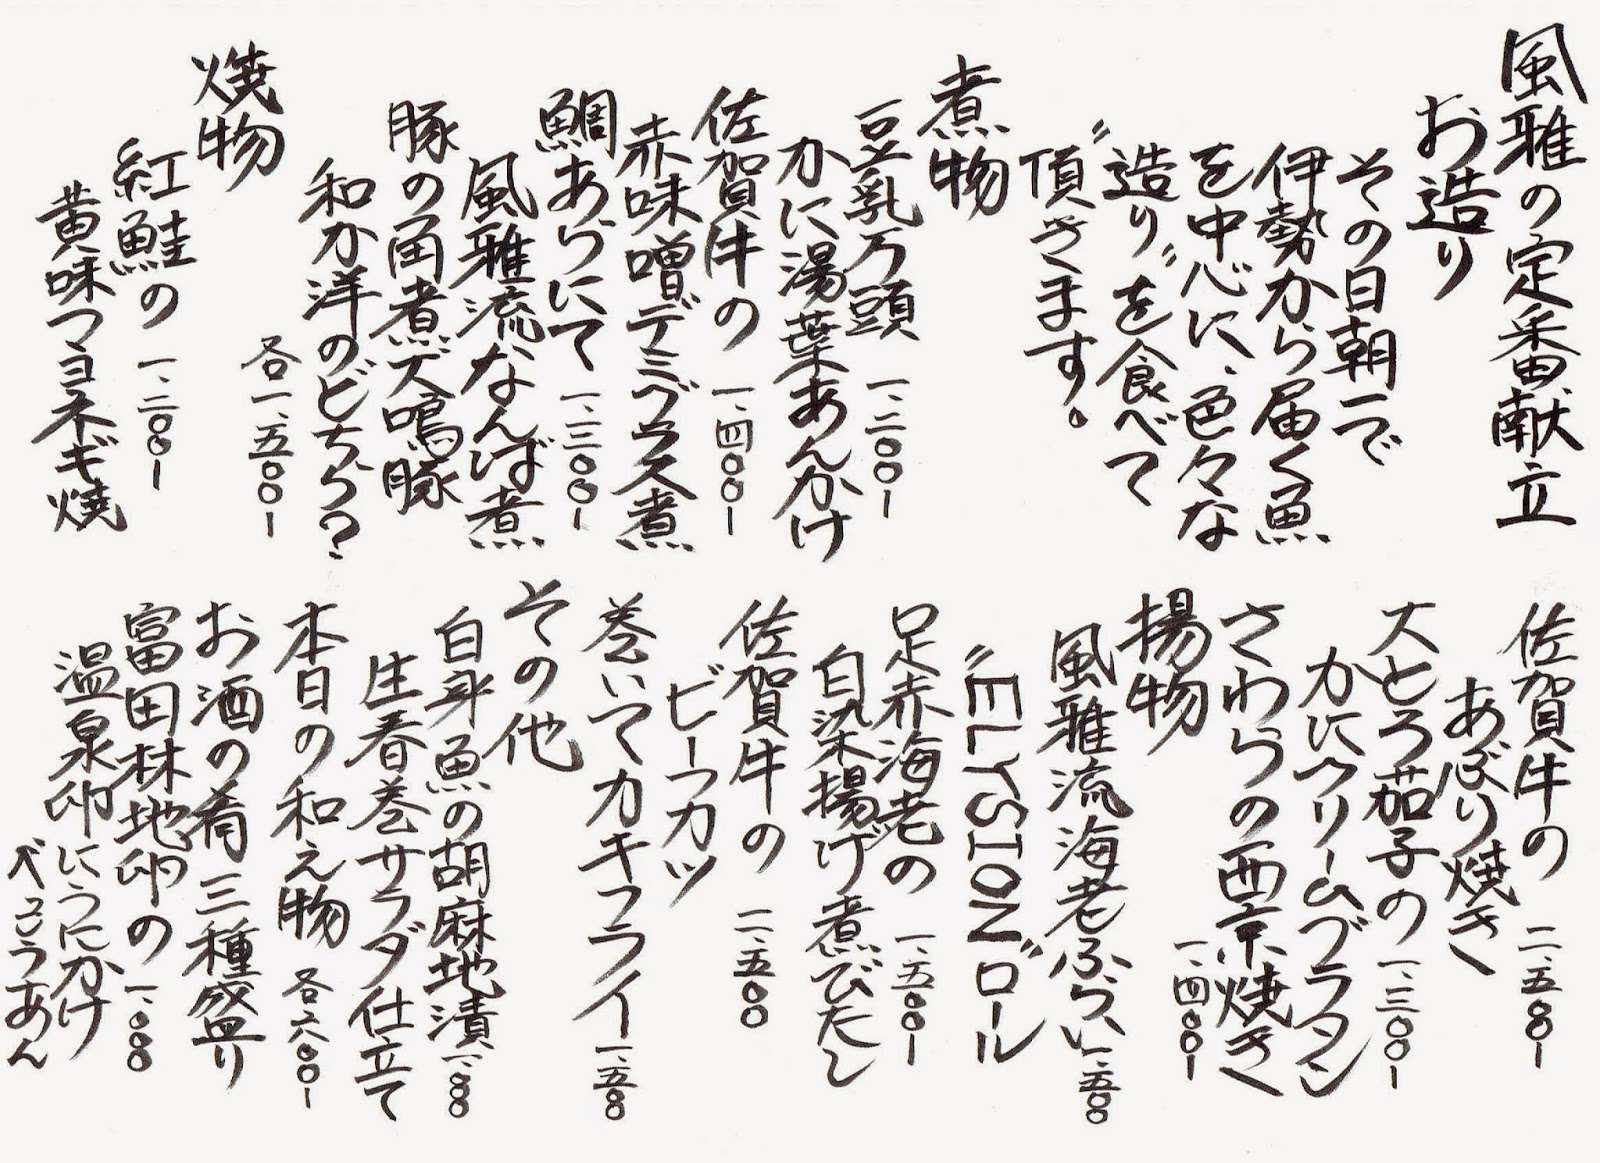 風雅の定番献立
お造り
その日朝一で
伊勢から届く魚
を中心に、色々な
〝造り〟を食べて
頂きます。
煮物
豆乳万頭 一、二〇〇ー
かに湯葉あんかけ
佐賀牛の 一、四〇〇ー
赤味噌デミグラス煮
鯛あらにて 一、三〇〇ー
風雅流なんば煮
豚の角煮 大鳴豚
和か洋のどちら？
各一、五〇〇ー
焼物
紅鮭の 一、二〇〇ー
黄味マヨネギ焼
佐賀牛の 二、五〇〇ー
あぶり焼き
大とろ茄子の 一、三〇〇ー
かにクリームグラタン
さわらの西京焼き
一、四〇〇ー
揚物
風雅流海老ふらい 一、五〇〇
〝ELYSION〟ロール
足赤海老の 一、五〇〇ー
白染揚げ煮びたし
佐賀牛の 二、五〇〇
ビーフカツ
巻いてカキフライ 一、五〇〇
その他
白身魚の胡麻地漬 一、〇〇〇
生春巻サラダ仕立て
本日の和え物 各六〇〇ー
お酒の肴三種盛り
富田林地卵の 一、〇〇〇
温泉卵にうにかけ
べっこうあん